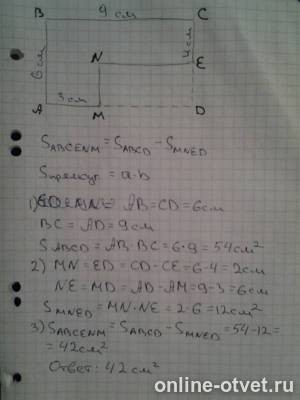 B 9 см C
6 см
4 см
N E
A 3 см M D
S ABCENM = S ABCD - S MNED
S прямоуг = a·b
1) AB = CD = 6 см
BC = AD = 9 см
S ABCD = AB·BC = 6·9 = 54 см²
2) MN = ED = CD - CE = 6-4 = 2 см
NE = MD = AD - AM = 9-3 = 6 см
S MNED = MN·NE = 2·6 = 12 см²
3) S ABCENM = S ABCD - S MNED = 54-12 =
= 42 см²
Ответ: 42 см²
online-otvet.ru